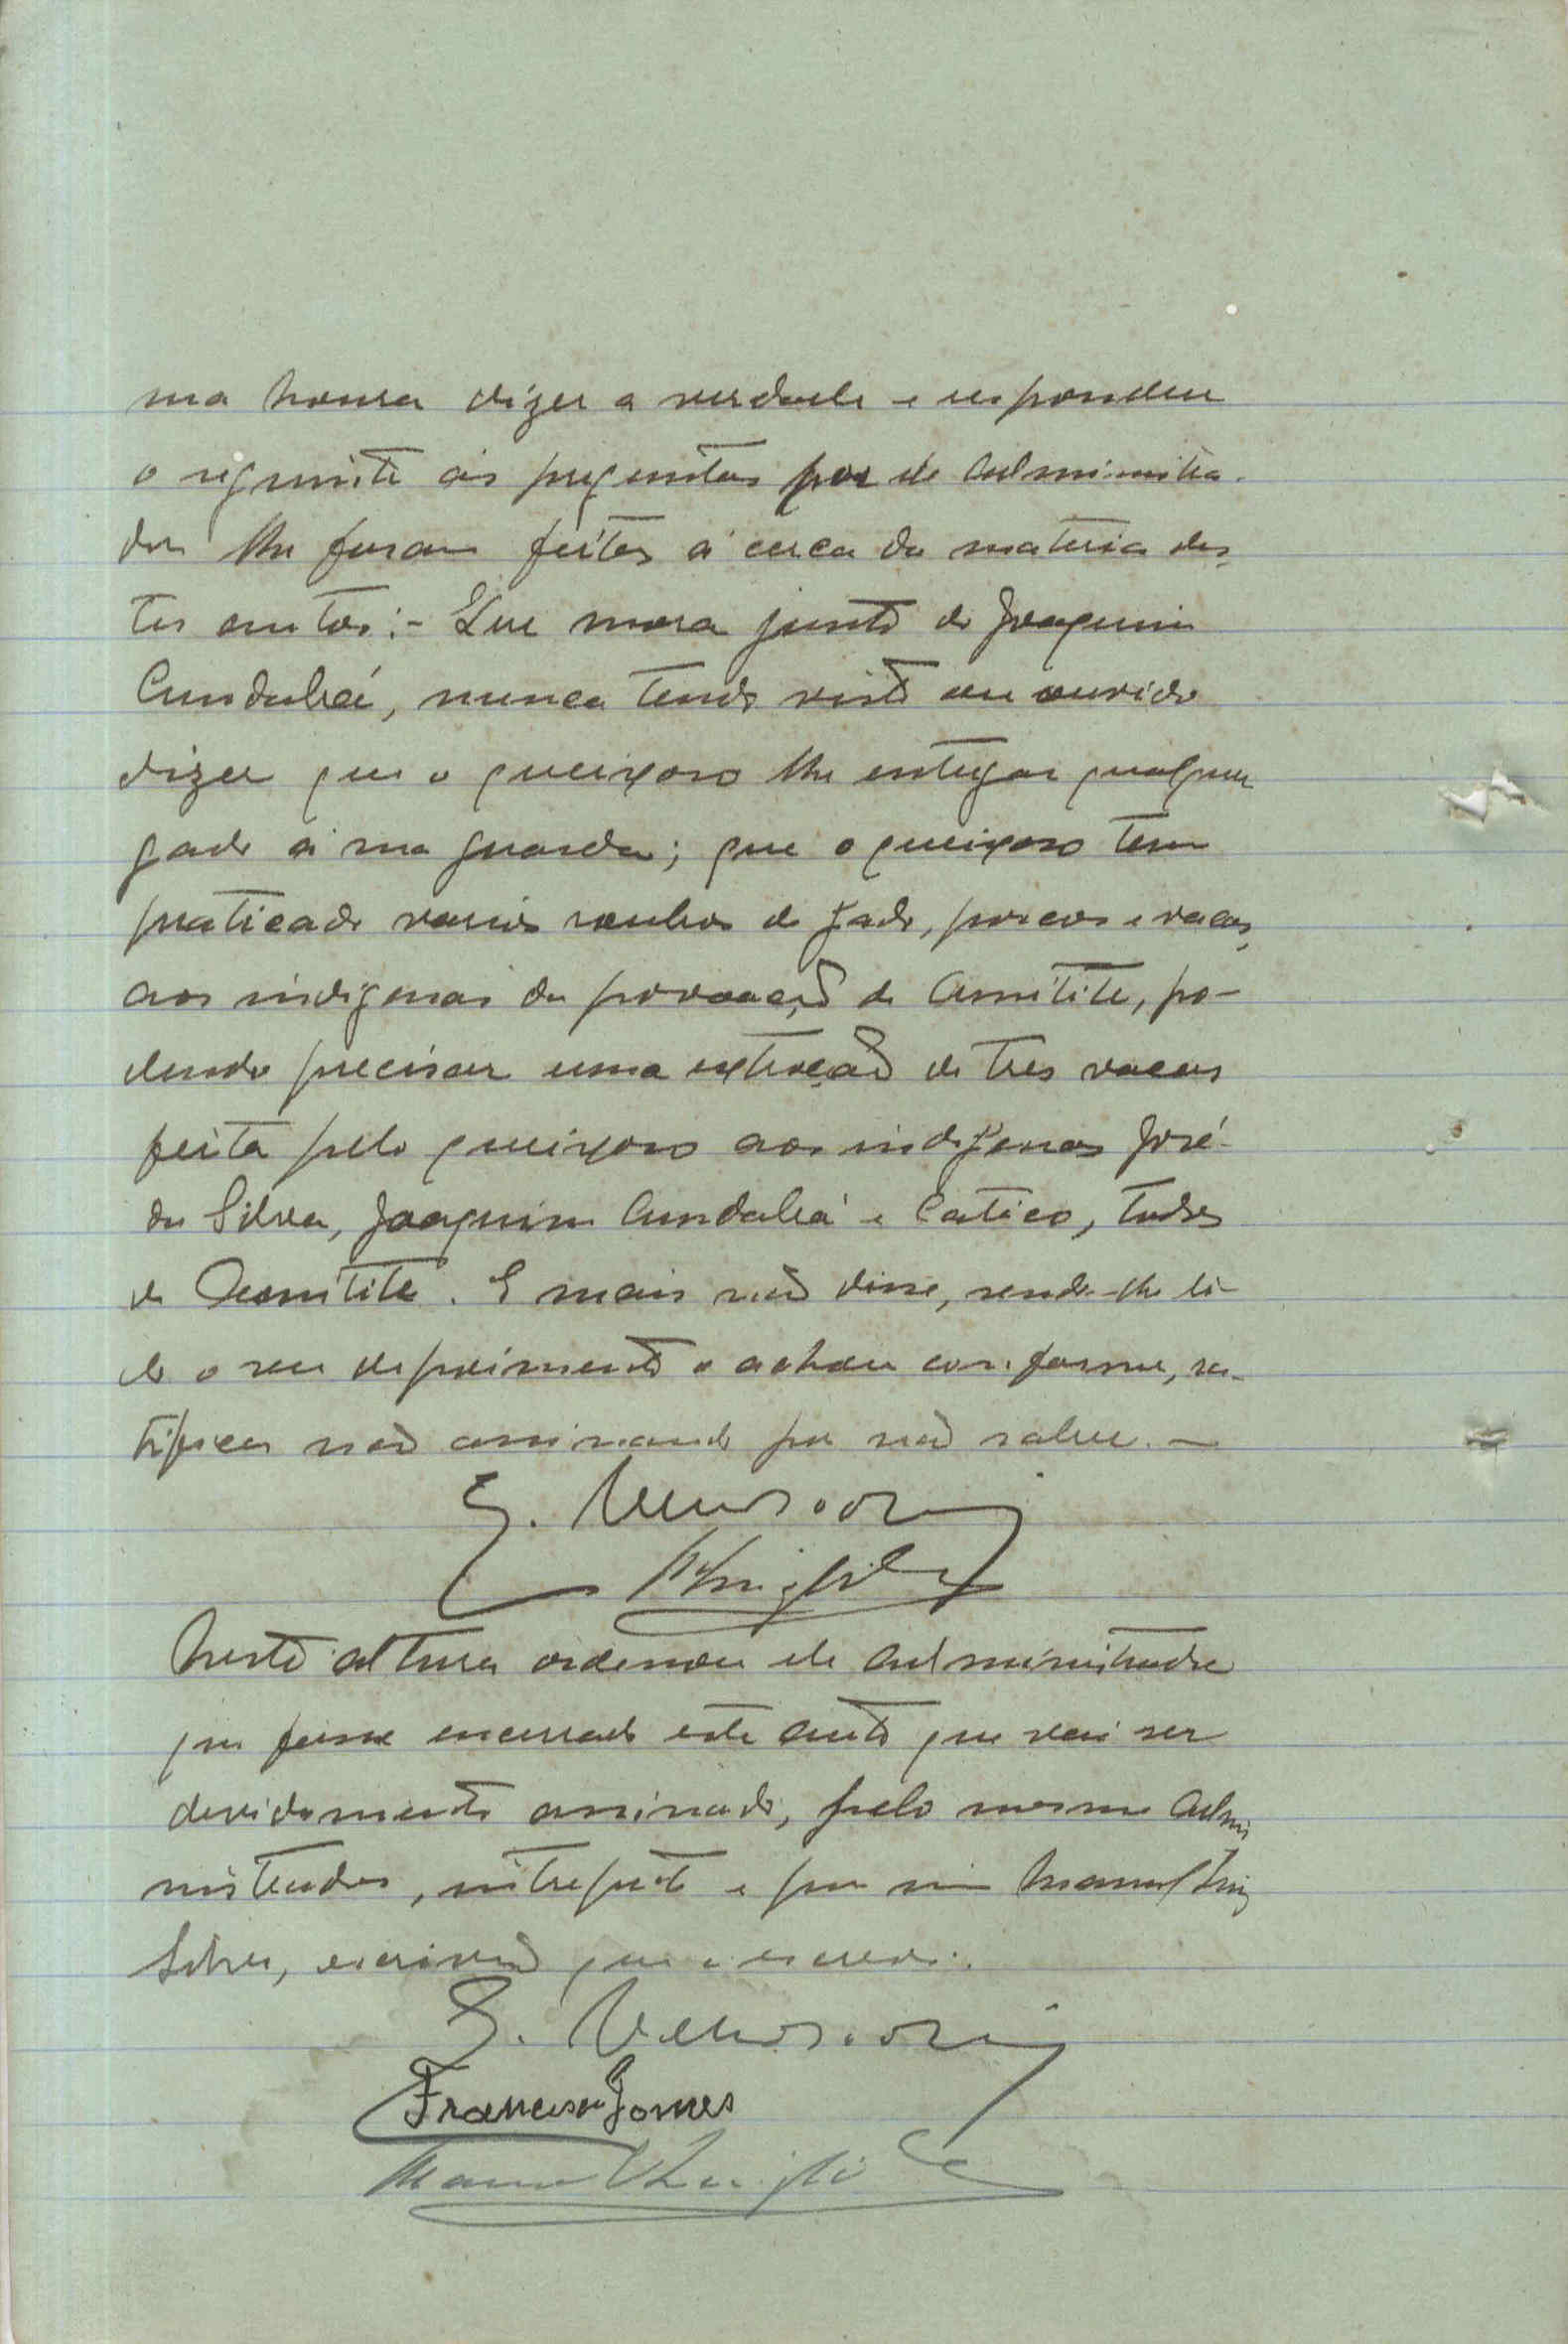 sua honra dizer a verdade e respondeu
o seguinte ás preguntas por ele administra-
dor lhe foram feitas á cerca da materia des-
tes autos:- Que mora junto de Joaquim
Cundubá, nunca tendo visto ou ouvido
dizer que o queixoso lhe entregar qualquer
gado á sua guarda; que o queixoso tem
praticado varios roubos de gado, porcos e vacas,
aos indigenas da povoação de Amitite, po-
dendo precisar uma extração de tres vacas
feita pelo queixoso aos indigenas José
da Silva, Joaquim Cundubá e Catico, todos
de Amitite. E mais não disse, sendo-lhe li-
do o seu depoimento o achou conforme, ra-
tificou não assinando por não saber. —
Nesta altura ordenou ele administrador
que fosse encerrado este auto que vai ser
devidamente assinado, pelo mesmo admi
nistrador, interprete e por mim Manuel Luiz
Silva, escrivão que o escrevi.
Francisco Gomes
Manuel Luiz